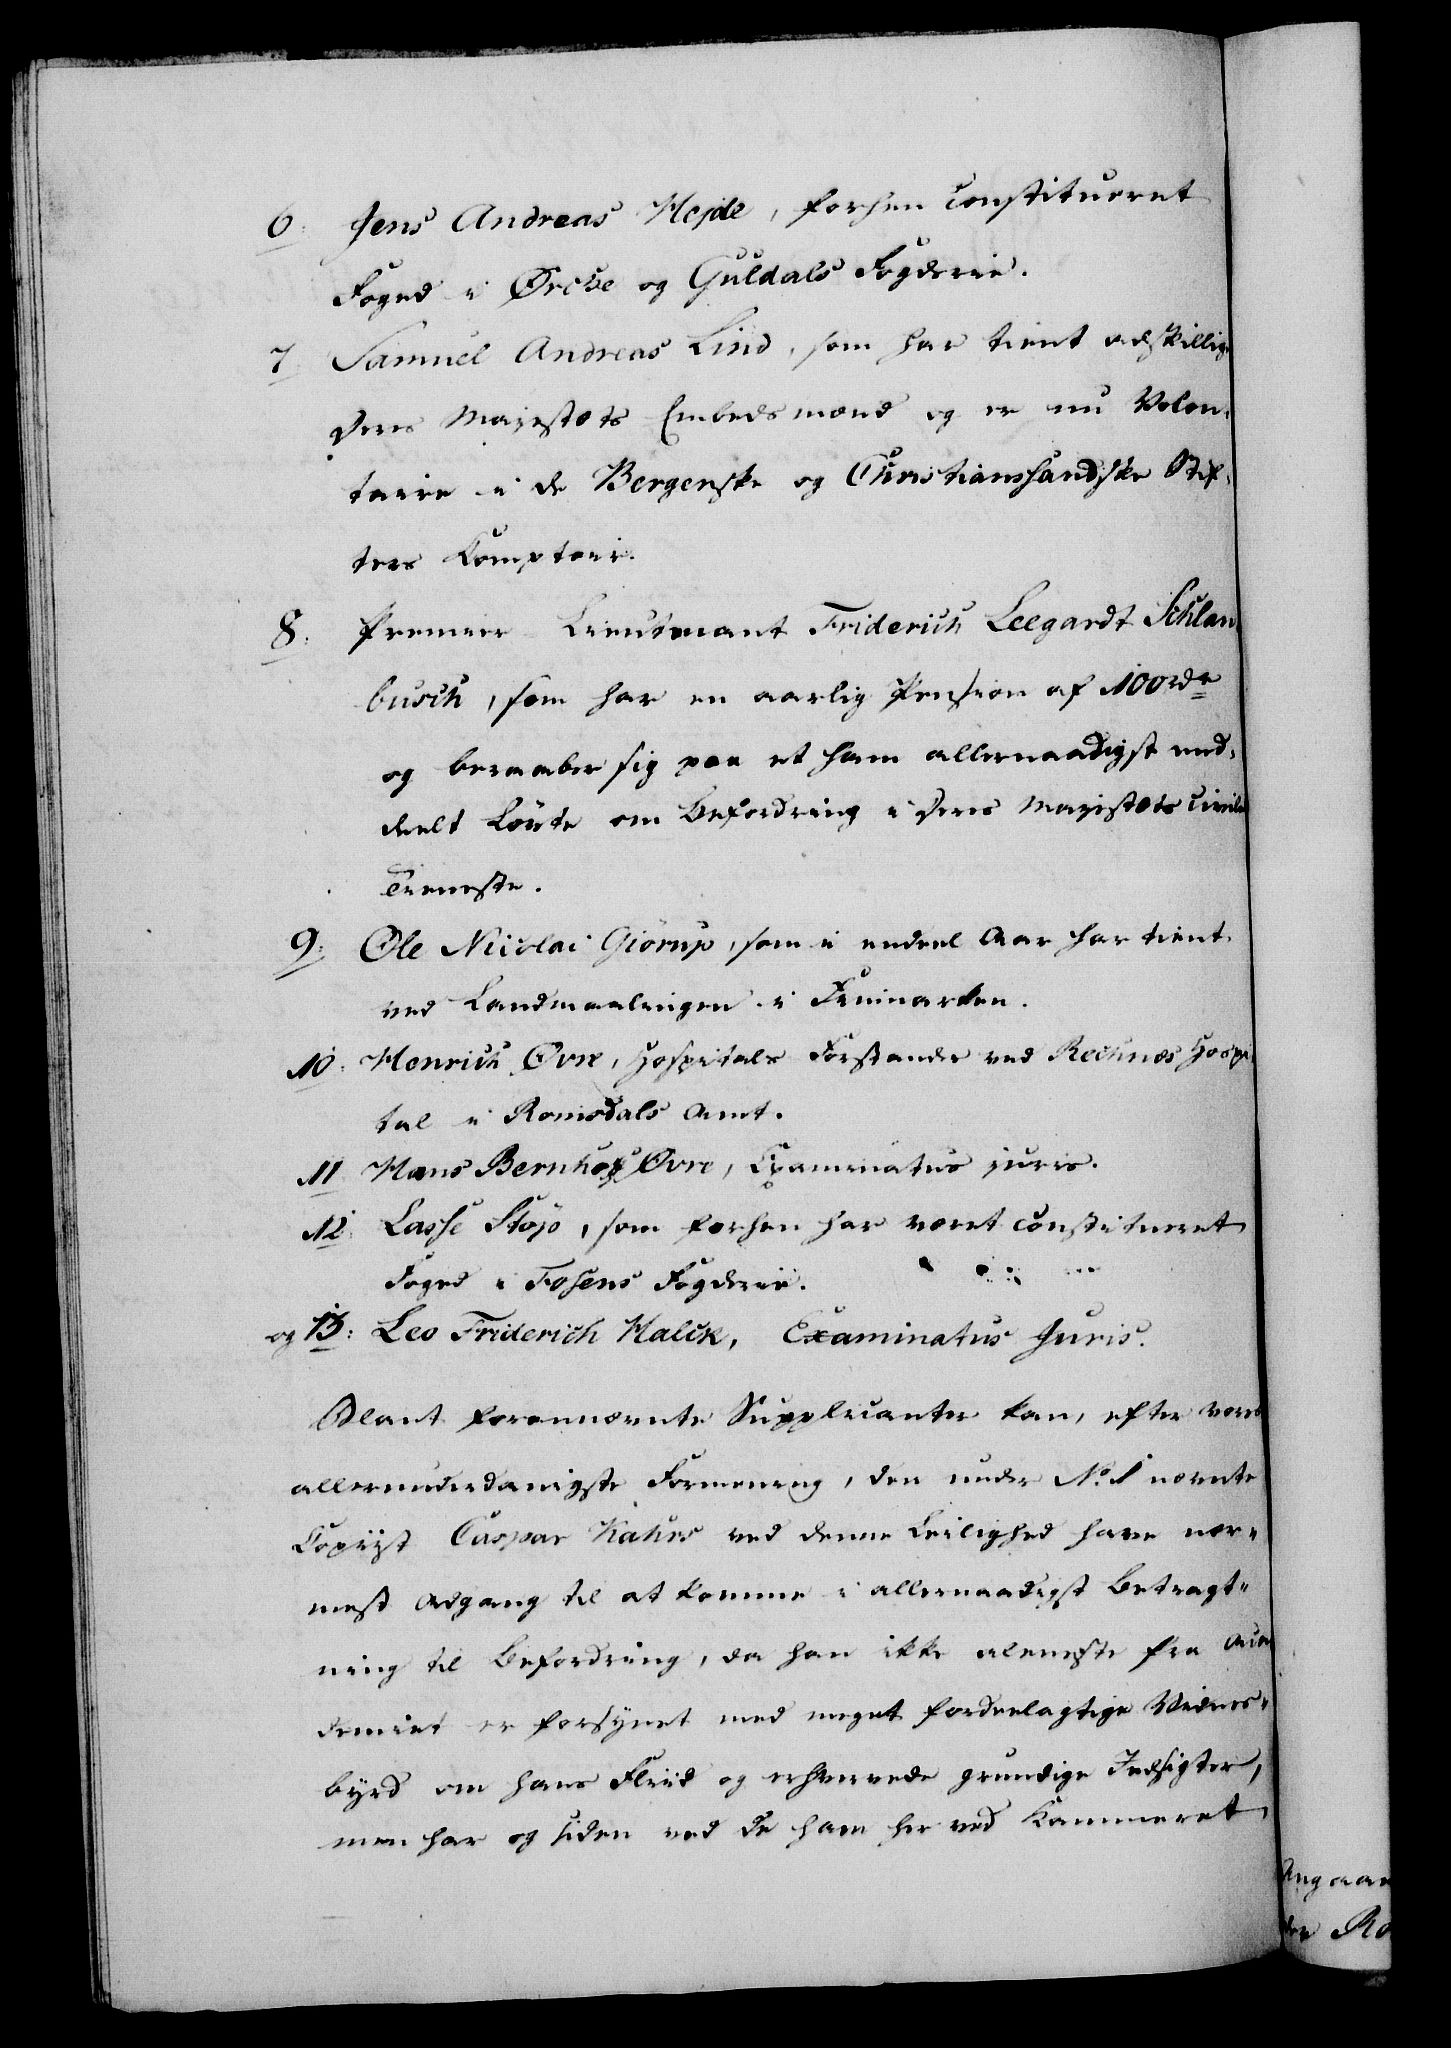 6. Jens Andreas Hejde, forhen constitueret
Foged i Ørche og Guldals Fogderie.
7. Samuel Andreas Lind, som har tient adskillige
Deres Majestæts Embedsmænd og er nu Volon-
taire i de Bergenske og Christianssandske Stif-
ters Comptoir.
8. Premier Lieutenant Friderich Leegardt Schlan-
busch, som har en aarlig Pension af 100 rdr
og beraaber sig paa et ham allernaadigst med-
deelt Løvte om Befordring i Deres Majestæts Civile
Tieneste.
9. Ole Nicolai Giörup, som i endeel Aar har tient
ved Landmaalingen i Finmarken.
10. Henrich Øvre, Hospitals Forstander ved Rechnæs Hospi-
tal i Romsdals Amt.
11 Hans Bernhoft Øvre, Examinatus juris.
12. Lasse Støp, som forhen har været constitueret
Foged i Fosens Fogderie.
og 13: Leo Friderich Halck, Examinatus Juris.
Blant forannævnte Supplicanter kan, efter vores
allerunderdanigste Formening, den under No. 1 nævnte
Copiist Caspar Kahrs ved denne Leilighed have nær-
mest Adgang til at komme i allernaadigst Betragt-
ning til Befordring, da han ikke aleneste fra Aca
demiet er forsynet med meget fordeelagtige Vidnes-
byrd om hans Fliid og erhvervede grundige Indsigter,
men har og siden ved de ham her ved Kammeret
Angaaen
der Ro